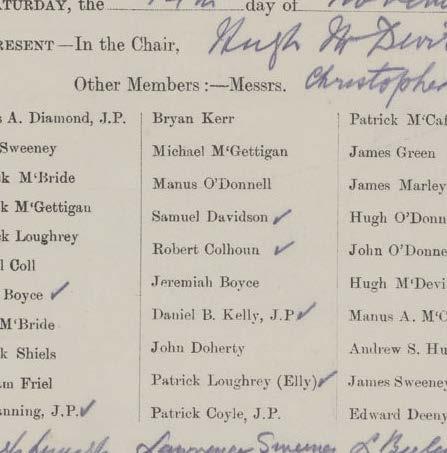 ATURDAY, the 14th day of Novem
RESENT—In the Chair, Hugh McDevi
Other Members:—Messrs. Christopher
s A. Diamond, J.P. Bryan Kerr Patrick M‘Caf
Sweeney Michael M‘Gettigan James Green
k M‘Bride Manus O’Donnell James Marley
k M‘Gettigan Samuel Davidson ✓ Hugh O’Donn
k Loughrey Robert Colhoun ✓ John O’Donne
l Coll Jeremiah Boyce Hugh M‘Devi
Boyce ✓ Daniel B. Kelly, J.P ✓ Manus A. M‘C
M‘Bride John Doherty Andrew S. Hu
k Shiels Patrick Loughrey (Elly) ✓ James Sweeney
am Friel Patrick Coyle, J.P. Edward Deeny
anning, J.P. ✓
Lawrence Sweeney